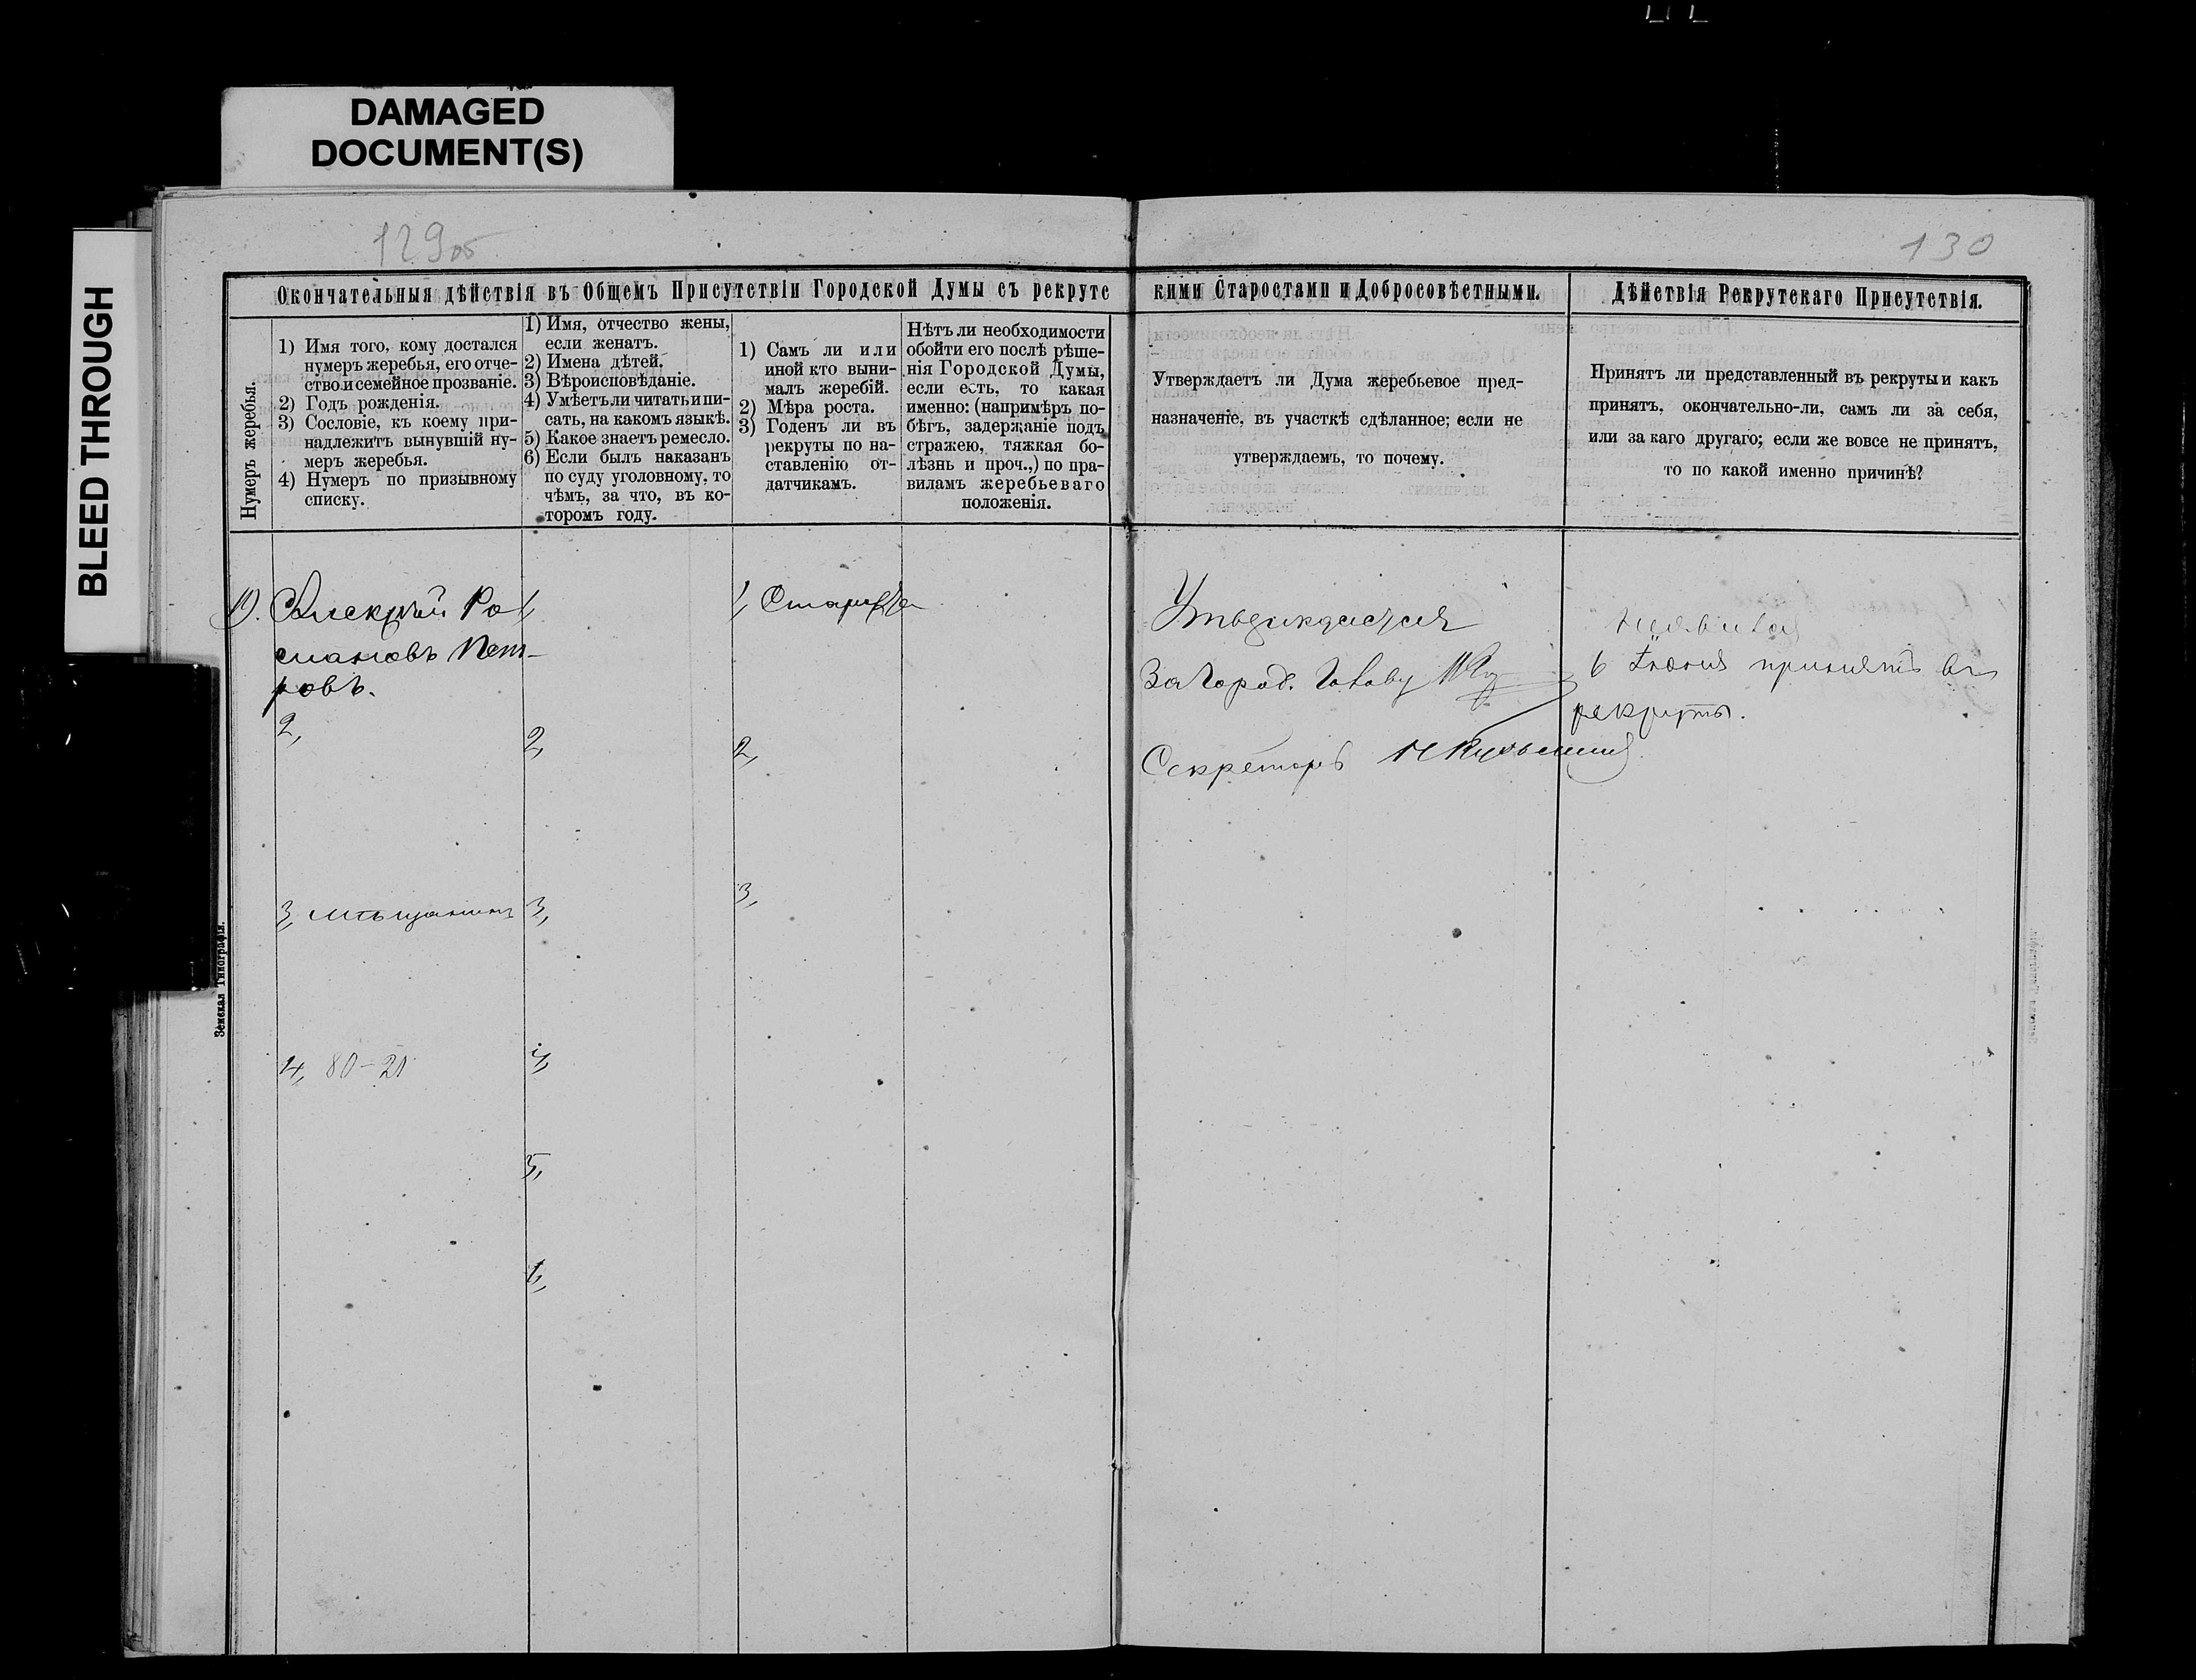 DAMAGED
DOCUMENT(S)
BLEED THROUGH
129об
130
Окончательныя дѣйствія въ Общемъ Присутствіи Городской Думы съ рекрутс
кими Старостами и Добросовѣстными.
Дѣйствія Рекрутскаго Присутствія.
Нумеръ жеребья.
1) Имя того, кому достался
нумеръ жеребья, его отче-
ство и семейное прозваніе.
2) Годъ рожденія.
3) Сословіе, къ коему при-
надлежитъ вынувшій ну-
меръ жеребья.
4) Нумеръ по призывному
списку.
1) Имя, отчество жены,
если женатъ.
2) Имена дѣтей.
3) Вѣроисповѣданіе.
4) Умѣетъ ли читать и пи-
сать, на какомъ языкѣ.
5) Какое знаетъ ремесло.
6) Если былъ наказанъ
по суду уголовному, то
чѣмъ, за что, въ ко-
торомъ году.
1) Самъ ли или
иной кто выни-
малъ жеребій.
2) Мѣра роста.
3) Годенъ ли въ
рекруты по на-
ставленію от-
датчикамъ.
Нѣтъ ли необходимости
обойти его послѣ рѣше-
нія Городской Думы,
если есть, то какая
именно: (напримѣръ по-
бѣгъ, задержаніе подъ
стражею, тяжкая бо-
лѣзнь и проч.,) по пра-
виламъ жеребьеваго
положенія.
Утверждаетъ ли Дума жеребьевое пред-
назначеніе, въ участкѣ сдѣланное; если не
утверждаемъ, то почему.
Принятъ ли представленный въ рекруты и какъ
принятъ, окончательно-ли, самъ ли за себя,
или за каго другаго; если же вовсе не принятъ,
то по какой именно причинѣ?
Алексѣй Ро
мановъ Пет-
ровъ.
2,
3, мѣщанинъ
4, 80-21
1,
2,
3,
4,
5,
6,
1, Староста
2,
3,
Утверждается
За Город. Голову
Секретарь
неявился
6 Іюня принятъ въ
рекруты.
Земская Типографія.